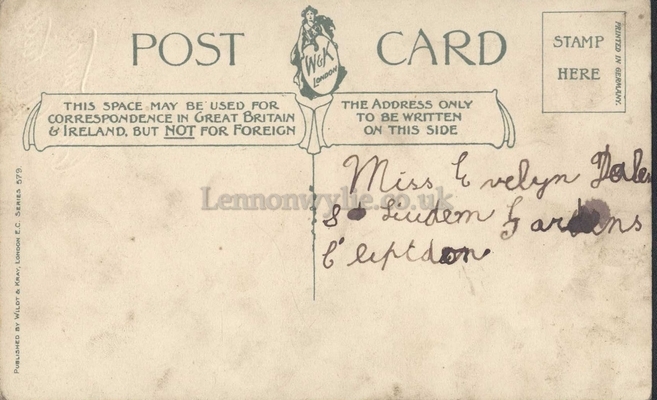 POST CARD
W&K
LONDON
STAMP
HERE
PRINTED IN GERMANY.
THIS SPACE MAY BE USED FOR
CORRESPONDENCE IN GREAT BRITAIN
& IRELAND, BUT NOT FOR FOREIGN
THE ADDRESS ONLY
TO BE WRITTEN
ON THIS SIDE
PUBLISHED BY WILDT & KRAY, LONDON E.C. SERIES 579.
Miss Evelyn
Gardens
Lennonwylie.co.uk